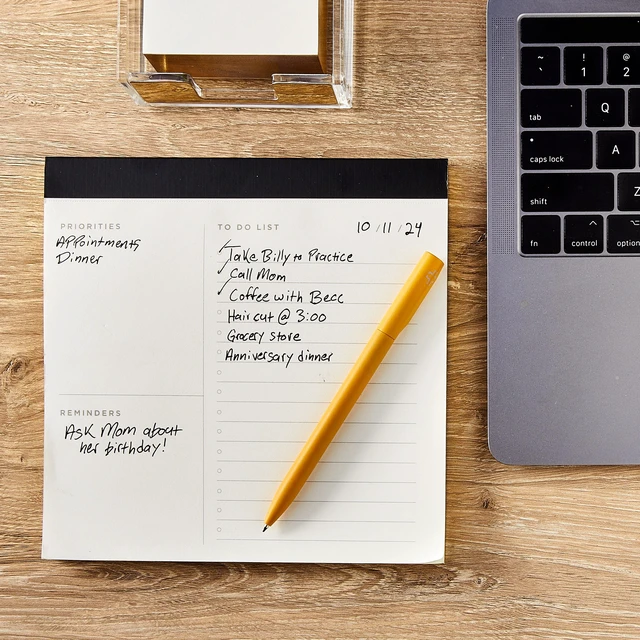 PRIORITIES
Appointments
Dinner
TO DO LIST
10/11/24
Take Billy to Practice
Call Mom
Coffee with Becc
Haircut @ 3:00
Grocery Store
Anniversary dinner
REMINDERS
Ask Mom about
her birthday!
~
`
!
1
@
2
tab
Q
caps lock
A
shift
Z
fn
control
option